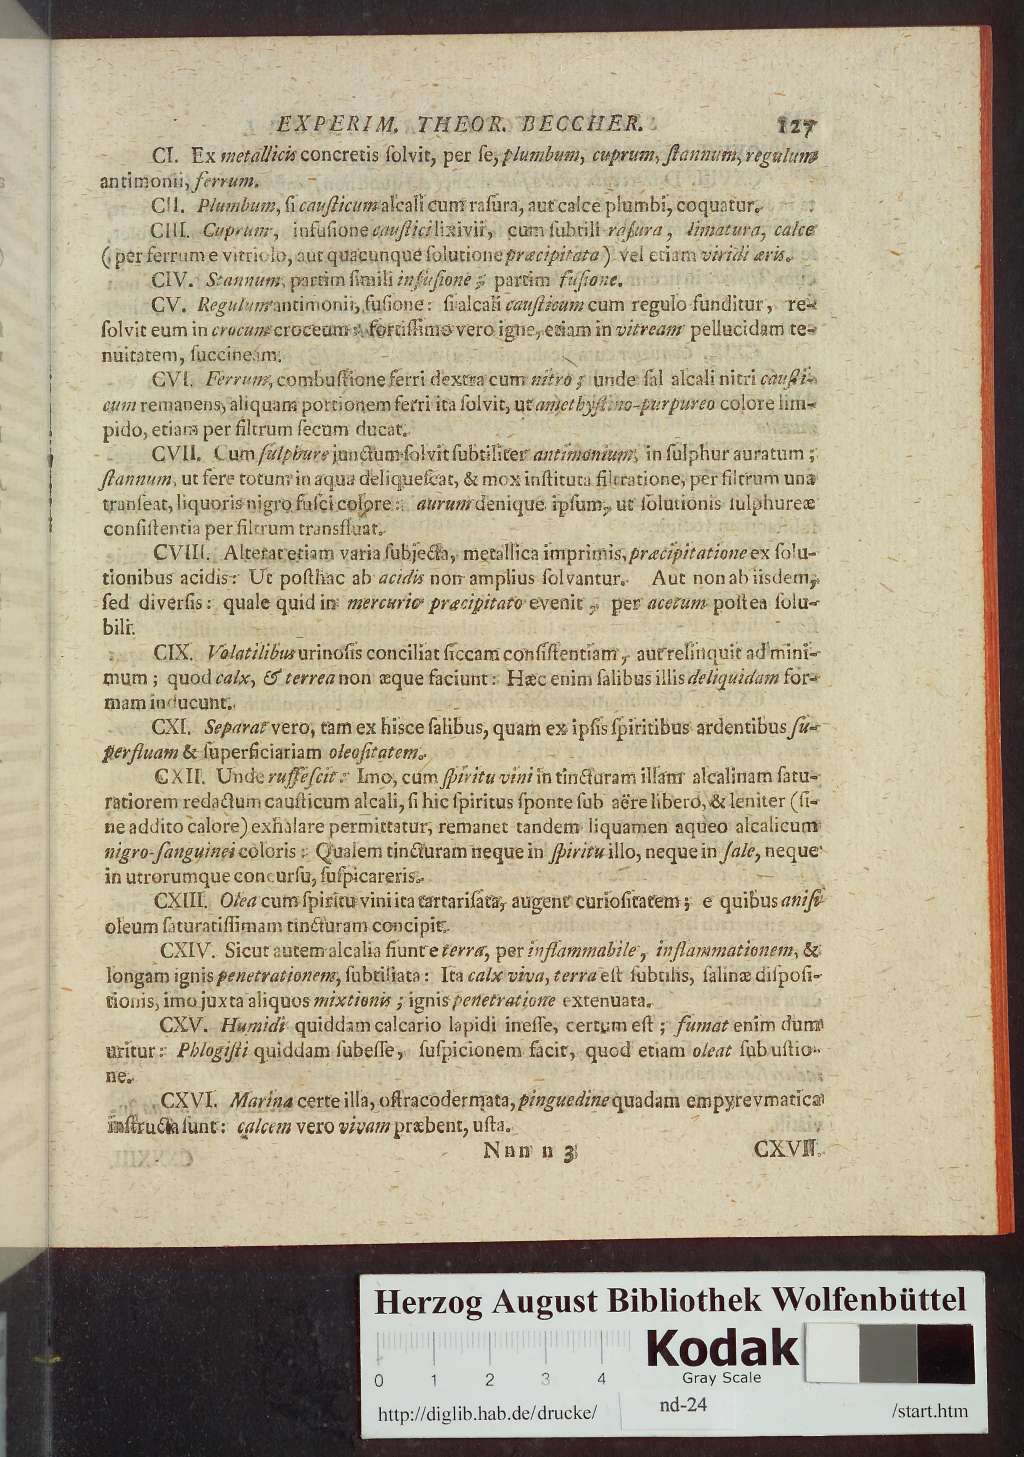 EXPERIM. THEOR. BECCHER. 127
CI. Ex metallicis concretis ſolvit, per ſe, plumbum, cuprum, ſtannum, regulum
antimonii, ferrum.
CII. Plumbum, ſi cauſticum alcali cum raſura, aut calce plumbi, coquatur.
CIII. Cuprum, infuſione cauſtici lixivii, cum ſubtili raſura, limatura, calce
(per ferrum e vitriolo, aut quacunque ſolutione præcipitata) vel etiam viridi æris.
CIV. Stannum, partim ſimili infuſione; partim fuſione.
CV. Regulum antimonii, fuſione: ſi alcali cauſticum cum regulo funditur, re-
ſolvit eum in crocum croceum: fortiſſimo vero igne, etiam in vitream pellucidam te-
nuitatem, ſuccineam.
CVI. Ferrum, combuſtione ferri dextra cum nitro; unde ſal alcali nitri cauſti-
cum remanens, aliquam portionem ferri ita ſolvit, ut amethyſtino-purpureo colore lim-
pido, etiam per filtrum ſecum ducat.
CVII. Cum ſulphure junctum ſolvit ſubtiliter antimonium, in ſulphur auratum;
ſtannum, ut fere totum in aqua deliqueſcat, & mox inſtituta filtratione, per filtrum una
tranſeat, liquoris nigro fuſci colore: aurum denique ipſum, ut ſolutionis ſulphureæ
conſiſtentia per filtrum transfluat.
CVIII. Alterat etiam varia ſubjecta, metallica imprimis, præcipitatione ex ſolu-
tionibus acidis: Ut poſthac ab acidis non amplius ſolvantur. Aut non ab iisdem,
ſed diverſis: quale quid in mercurio præcipitato evenit, per acetum poſtea ſolu-
bili.
CIX. Volatilibus urinoſis conciliat ſiccam conſiſtentiam, aut relinquit ad mini-
mum; quod calx, & terrea non æque faciunt: Hæc enim ſalibus illis deliquidam for-
mam inducunt.
CXI. Separat vero, tam ex hisce ſalibus, quam ex ipſis ſpiritibus ardentibus ſu-
perfluam & ſuperficiariam oleoſitatem.
CXII. Unde ruffeſcit: Imo, cum ſpiritu vini in tincturam illam alcalinam ſatu-
ratiorem redactum cauſticum alcali, ſi hic ſpiritus ſponte ſub aëre libero, & leniter (ſi-
ne addito calore) exhalare permittatur, remanet tandem liquamen aqueo alcalicum
nigro-ſanguinei coloris: Qualem tincturam neque in ſpiritu illo, neque in ſale, neque
in utrorumque concurſu, ſuſpicareris.
CXIII. Olea cum ſpiritu vini ita tartariſata, augent curioſitatem; e quibus aniſi
oleum ſaturatiſſimam tincturam concipit.
CXIV. Sicut autem alcalia fiunt e terra, per inflammabile, inflammationem, &
longam ignis penetrationem, ſubtiliata: Ita calx viva, terra eſt ſubtilis, ſalinæ diſpoſi-
tionis, imo juxta aliquos mixtionis; ignis penetratione extenuata.
CXV. Humidi quiddam calcario lapidi ineſſe, certum eſt; fumat enim dum
uritur: Phlogiſti quiddam ſubeſſe, ſuſpicionem facit, quod etiam oleat ſub uſtio-
ne.
CXVI. Marina certe illa, oſtracodermata, pinguedine quadam empyrevmatica
inſtructa ſunt: calcem vero vivam præbent, uſta.
Nnn n 3 CXVII.
Herzog August Bibliothek Wolfenbüttel
Kodak
Gray Scale
0 1 2 3 4
http://diglib.hab.de/drucke/ nd-24 /start.htm